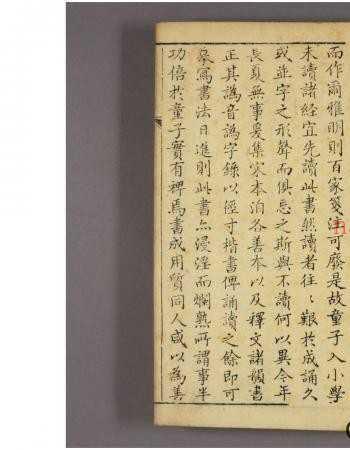 而作爾雅明則百家箋注可廢是故童子入小學
未讀諸經宜先讀此書然讀者往〻艱於成誦久
或並字之形聲而俱忘之斯與不讀何以異今年
長夏無事爰集宋本洎各善本以及釋文諸韻書
正其譌音譌字錄以徑寸楷書俾誦讀之餘即可
摹寫書法日進則此書亦浸淫而爛熟所謂事半
功倍於童子實有裨焉書成用質同人咸以為善